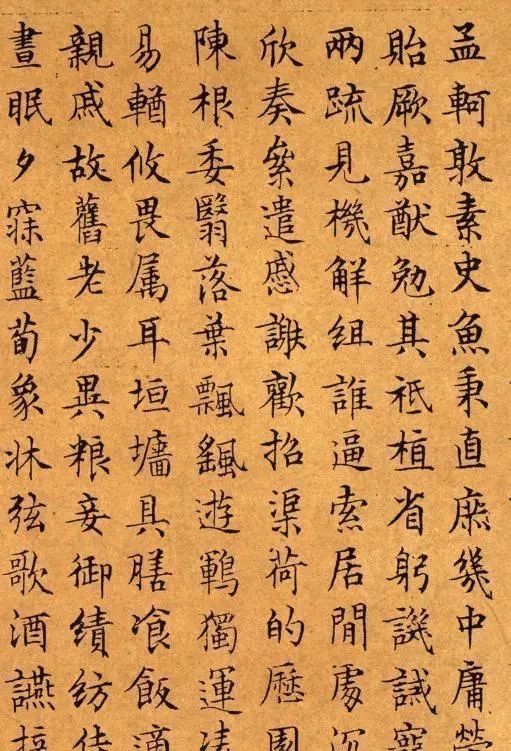 孟軻敦素史魚秉直庶幾中庸勞
貽厥嘉猷勉其祗植省躬譏誡寵
兩疏見機解組誰逼索居間處沉
欣奏絫遣慼謝歡招渠荷的歷園
陳根委翳落葉飄颻遊鵾獨運凌
易輶攸畏属耳垣墻具膳飡飯適
親戚故舊老少異粮妾御績紡侍
晝眠夕寐藍荀象牀弦歌酒讌接